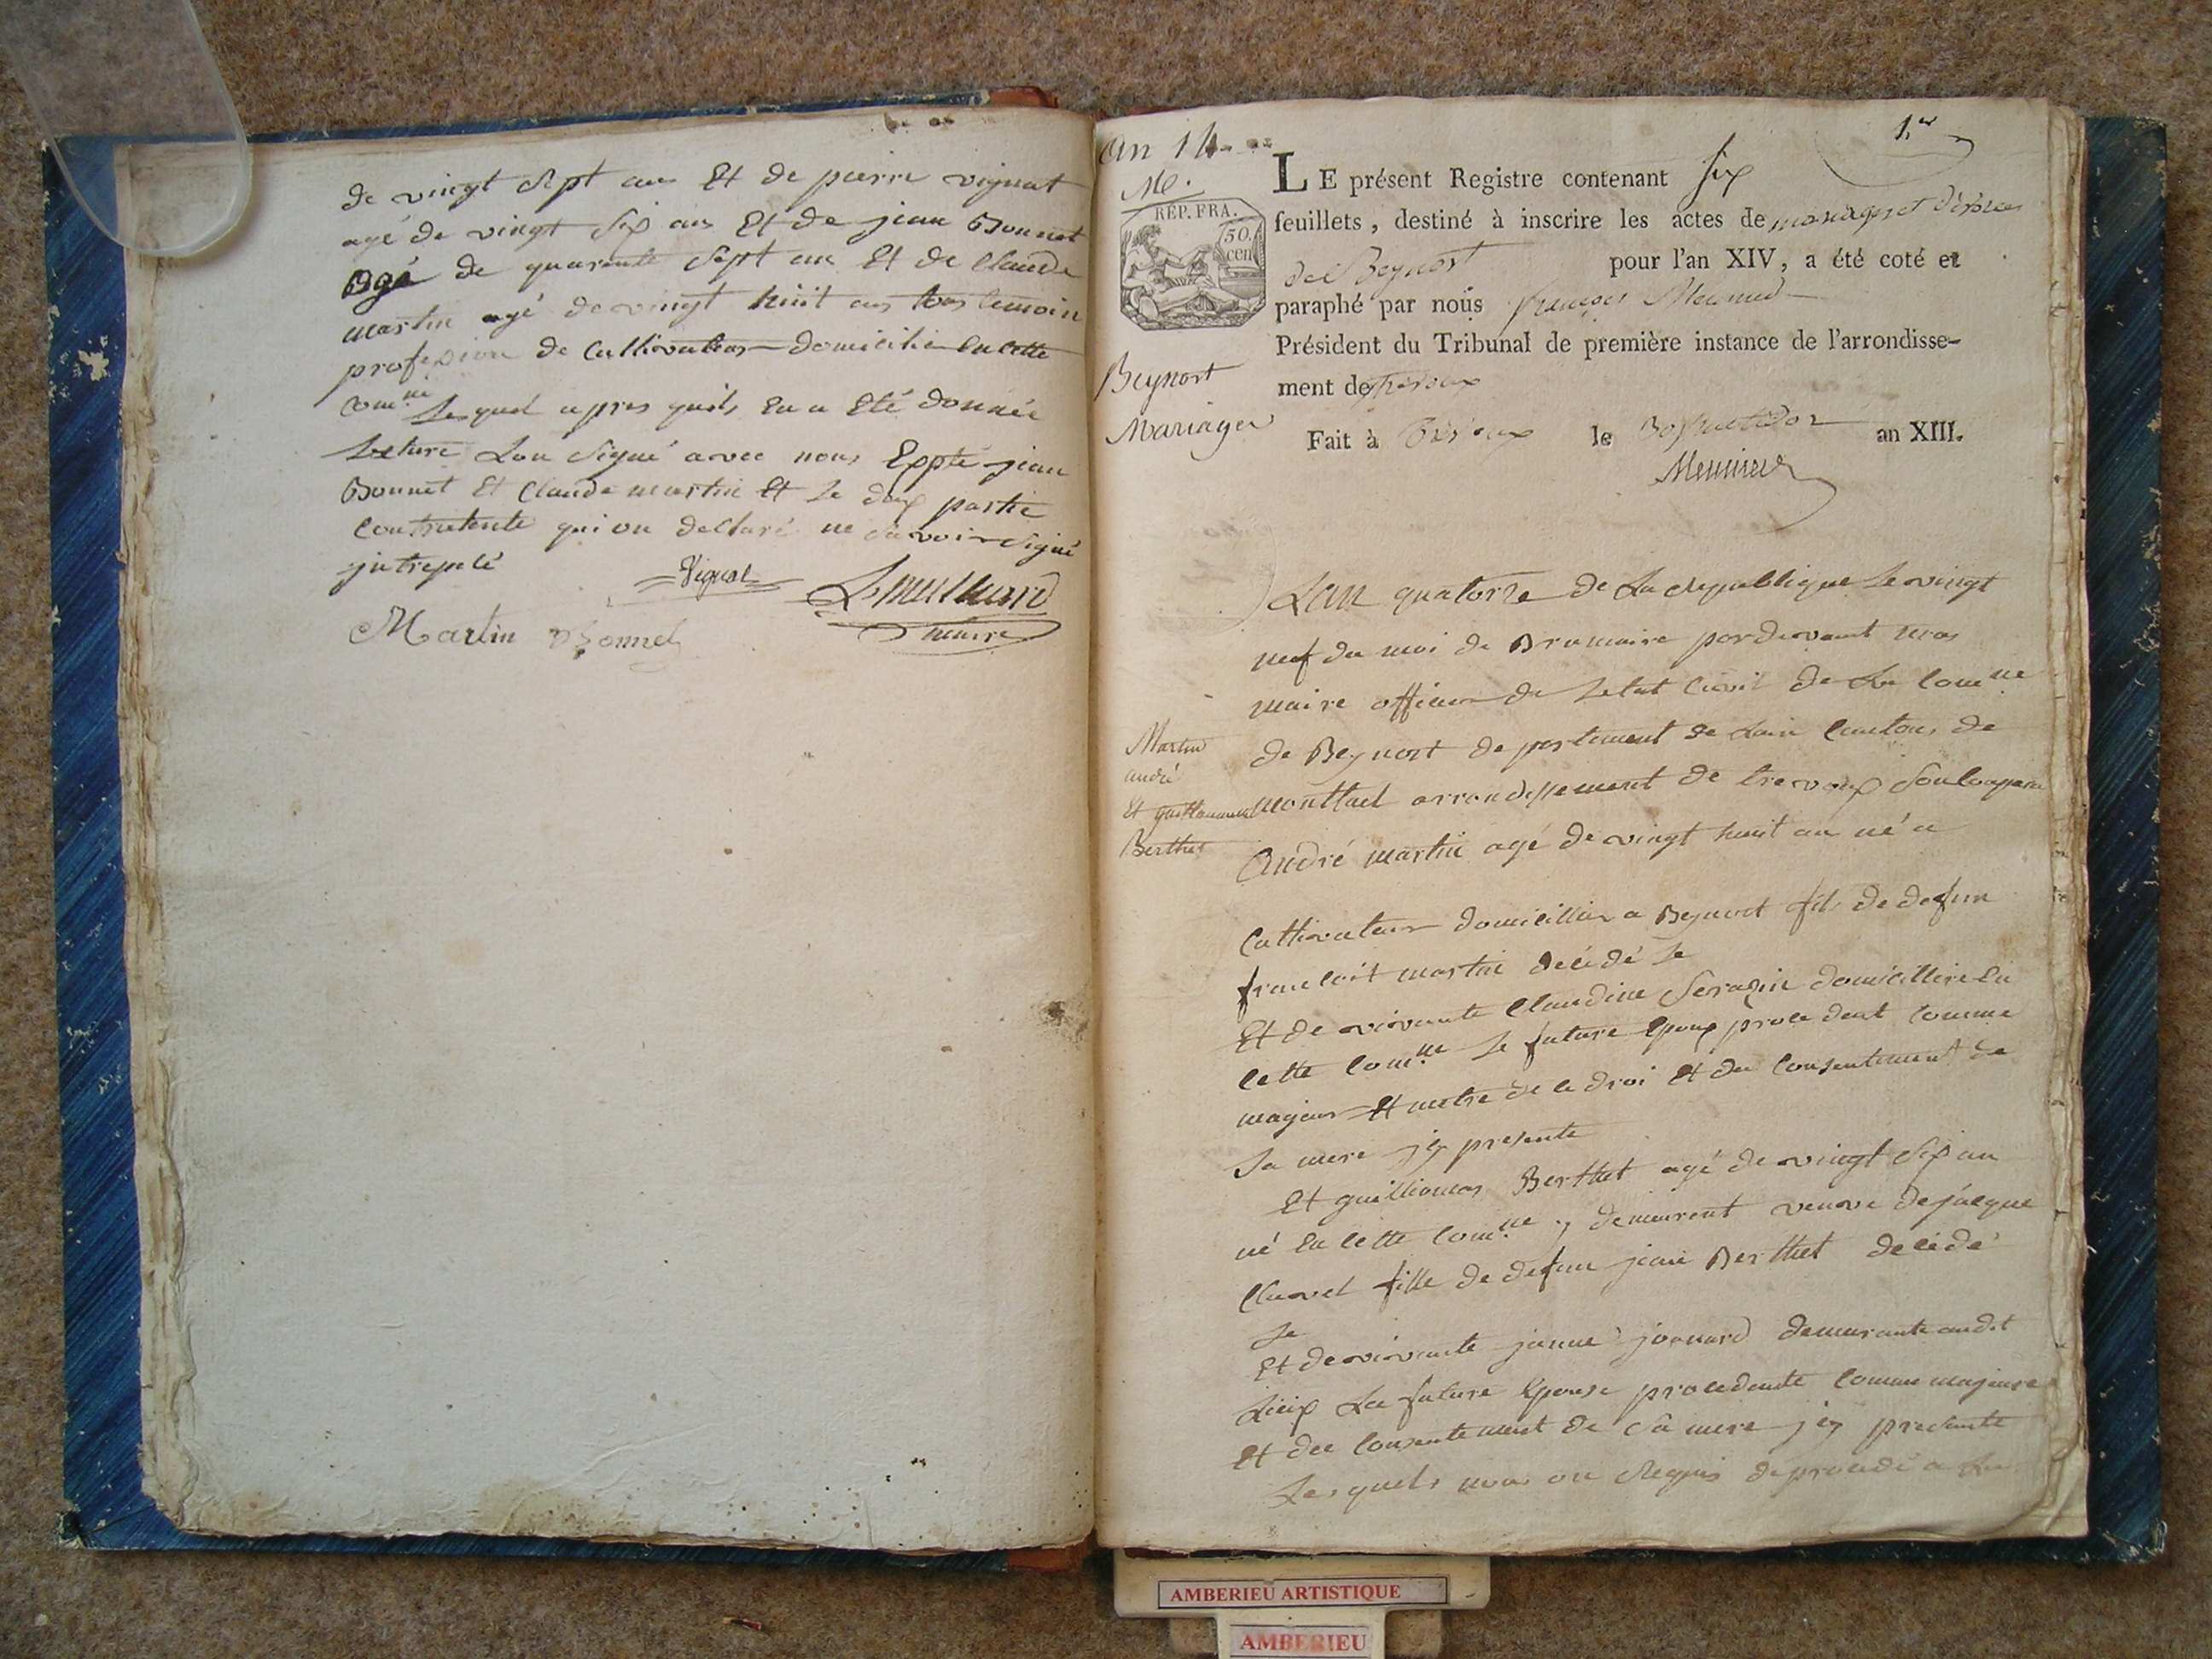 de vingt Sept ans Et de pierre vignat
agé de vingt Six ans Et de jean Bonnet
agé de quarente Sept ans Et de Claude
martin agé de vingt huit ans tous temoin
profesion de Cultivateur domicilié en cette
comne Lesquel apres quils en a Eté donnée
Lecture Lon Signé avec nous Eppté jean
Bonnet Et Claude martin Et Le deux partie
Contratente qui on declaré ne savoir Signé
jntrepelé
Vignat
Martin Bonnet
maire
An 14
M.
1.er
LE présent Registre contenant six
feuillets, destiné à inscrire les actes de mariages et divorces
de Beynost pour l'an XIV, a été coté et
paraphé par nous françois Meunier
Président du Tribunal de première instance de l'arrondisse-
ment de Trévoux
Fait à Trévoux le 30 fructidor an XIII.
Meunier
RÉP. FRA.
50.
cen
Beynost
Mariages
Martin
andré
Et guillauma
Berthet
Lan quatorze de La Republique Le vingt
neuf du moi de Brumaire pardevant nous
maire officier de Letat Civil de La Comne
de Beynost departement de Lain Canton de
montluel arrondissement de trevoux
André martin agé de vingt huit an né a
Cultivateur domicillier a Beynost fils de defun
francoit martin décédé Le
Et de vivante Claudine Serazin domicilliere En
Cette Comne Le future Epoux procedent Comme
majeur Et metre de ce droi Et du Consentement de
Sa mere jcy presente
Et guillioumas Berthet agé de vingt Six an
né En Cette Comne y demeurent venve de jacque
Clavel fille de defun jean Berthet decédé
Le
Et de vivante janne joanard demeurante audit
Lieux La future Epouse procedente Comme majeure
Et du Consentement de Sa mere jcy presente
Lesquels nous on Requis de procedé a La
AMBERIEU ARTISTIQUE
AMBERIEU